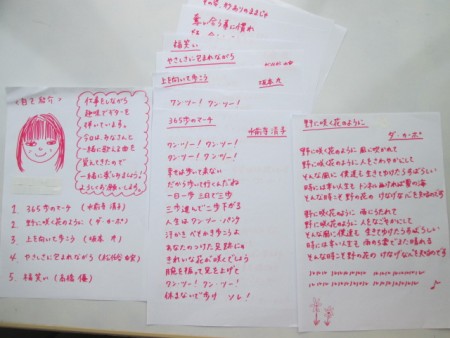 <自己紹介>
仕事をしながら
趣味でギターを
弾いています。
今日は、みなさんと
一緒に歌える曲を
覚えてきたので
一緒に楽しみましょう♪
よろしくお願いします。
1 365歩のマーチ (水前寺 清子)
2 野に咲く花のように (ダ・カーポ)
3 上を向いて歩こう (坂本 九)
4 やさしさに包まれながら
5 福笑い (高橋 優)
奪い合う事に慣れ
福笑い
やさしさに包まれながら
上を向いて歩こう
坂本 九
ワン・ツー! ワン・ツー!
365歩のマーチ
水前寺 清子
ワン・ツー! ワン・ツー!
ワン・ツー! ワン・ツー!
幸せは歩いて来ない
だから歩いて行くんだね
一日一歩 三日で三歩
三歩進んで二歩下がる
人生はワン・ツー・パンチ
汗かきべそかき歩こうよ
あなたのつけた足跡にゃ
きれいな花が咲くでしょう
腕を振って足を上げて
ワン・ツー! ワン・ツー!
休まないで歩け ソレ!
野に咲く花のように
ダ・カーポ
野に咲く花のように 風に吹かれて
野に咲く花のように 人をさわやかにして
そんな風に僕達も 生きて行けたらすばらしい
時には暗い人生も トンネルぬければ夏の海
そんな時こそ野の花の けなげな心を知るのです
野に咲く花のように 雨にうたれて
野に咲く花のように 人をなごやかにして
そんな風に僕達も 生きて行けたらすばらしい
時にはつらい人生も 雨のち曇でまた晴れる
そんな時こそ野の花の けなげな心を知るのです